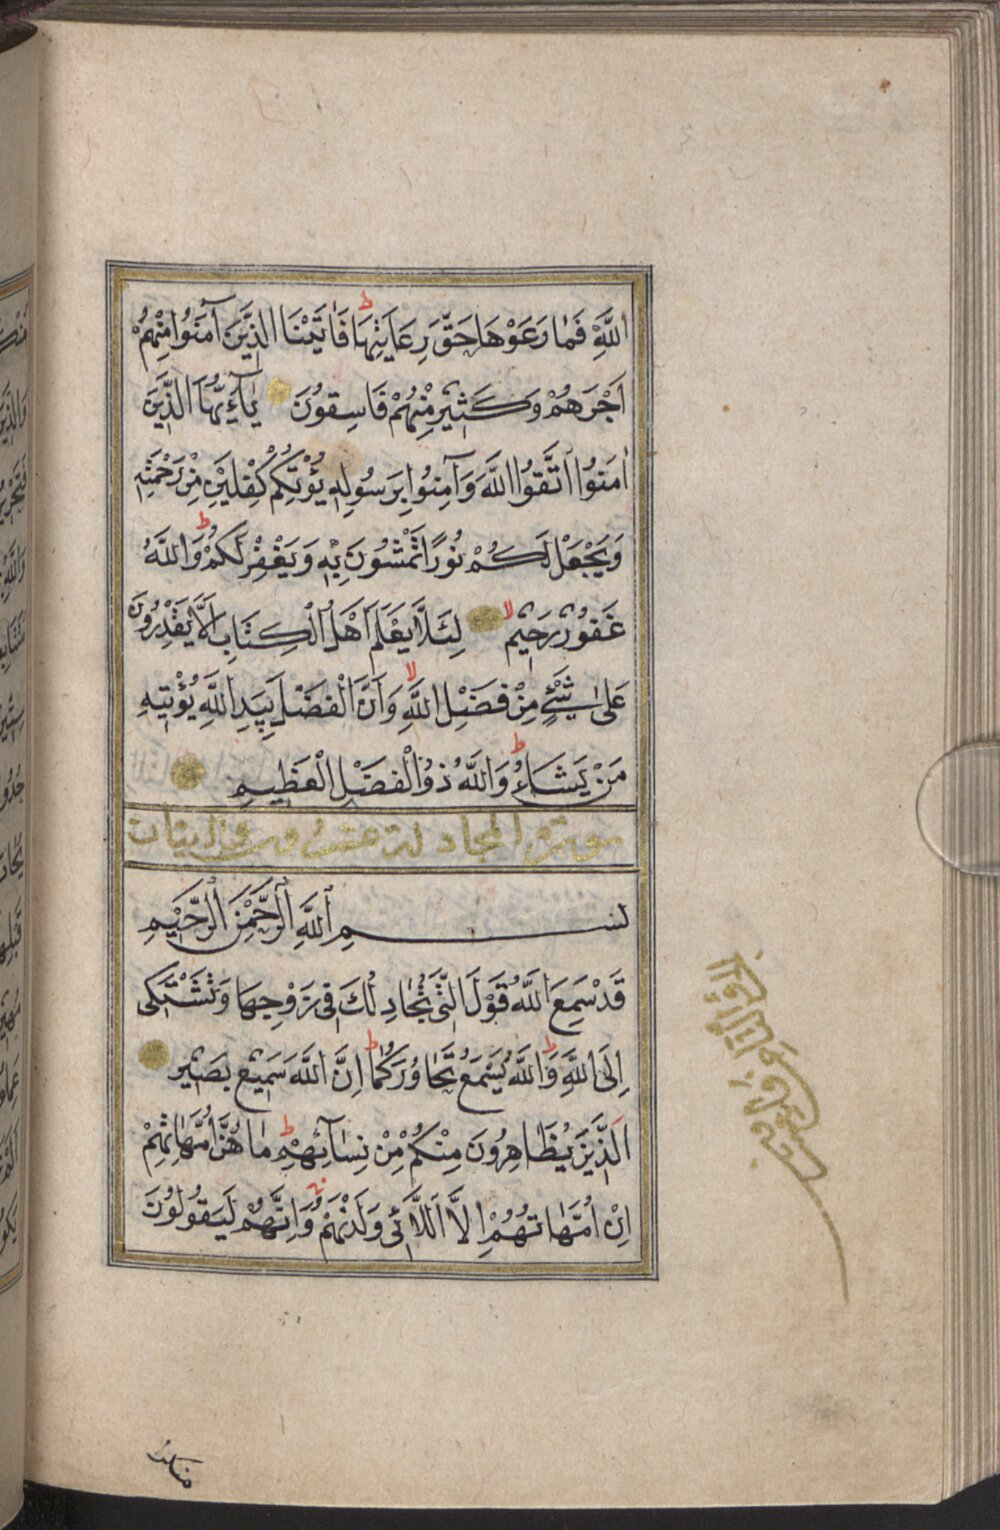 اللَّهِ فَمَا رَعَوْهَا حَقَّ رِعَايَتِهَا فَآتَيْنَا الَّذِينَ آمَنُوا مِنْهُمْ
أَجْرَهُمْ وَكَثِيرٌ مِنْهُمْ فَاسِقُونَ يَاأَيُّهَا الَّذِينَ
اٰمَنُوا اتَّقُوا اللَّهَ وَآمِنُوا بِرَسُولِهِ يُؤْتِكُمْ كِفْلَيْنِ مِنْ رَحْمَتِهِ
وَيَجْعَلْ لَكُمْ نُورًا تَمْشُونَ بِهِ وَيَغْفِرْ لَكُمْ ط وَاللَّهُ
غَفُورٌ رَحِيمٌ لا لِئَلَّا يَعْلَمَ أَهْلُ الْكِتَابِ أَلَّا يَقْدِرُونَ
عَلَىٰ شَيْءٍ مِنْ فَضْلِ اللَّهِ لا وَأَنَّ الْفَضْلَ بِيَدِ اللَّهِ يُؤْتِيهِ
مَنْ يَشَاءُ ط وَاللَّهُ ذُو الْفَضْلِ الْعَظِيمِ
سورة المجادلة عشرون آيات
بِسْمِ اللَّهِ الرَّحْمَٰنِ الرَّحِيمِ
قَدْ سَمِعَ اللَّهُ قَوْلَ الَّتِي تُجَادِلُكَ فِي زَوْجِهَا وَتَشْتَكِي
إِلَى اللَّهِ ط وَاللَّهُ يَسْمَعُ تَحَاوُرَكُمَا ط إِنَّ اللَّهَ سَمِيعٌ بَصِيرٌ
الَّذِينَ يُظَاهِرُونَ مِنْكُمْ مِنْ نِسَائِهِمْ ط مَا هُنَّ أُمَّهَاتِهِمْ
إِنْ أُمَّهَاتُهُمْ إِلَّا اللَّائِي وَلَدْنَهُمْ ط وَإِنَّهُمْ لَيَقُولُونَ
منكرا